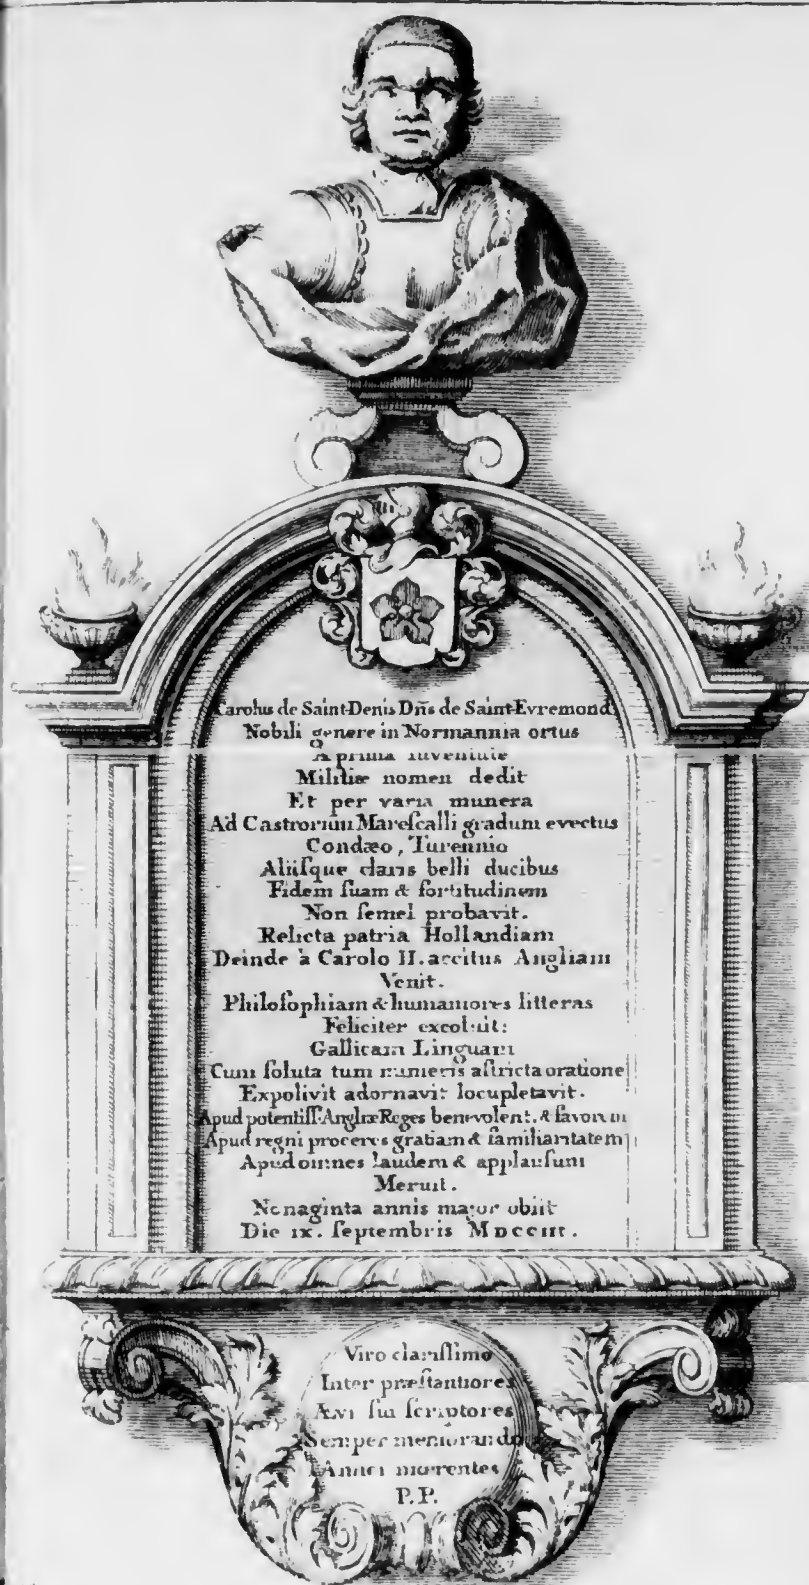 Carolus de Saint-Denis Dñs de Saint-Evremond
Nobili genere in Normannia ortus
A prima iuventute
Militiæ nomen dedit
Et per varia munera
Ad Castrorum Mareſcalli gradum evectus
Condæo, Turennio
Aliiſque claris belli ducibus
Fidem ſuam & fortitudinem
Non ſemel probavit.
Relicta patria Hollandiam
Deinde à Carolo II. accitus Angliam
Venit.
Philoſophiam & humaniores litteras
Feliciter excoluit:
Gallicam Linguam
Cum ſoluta tum numeris aſtricta oratione
Expolivit adornavit locupletavit.
Apud potentiſſ. Angliæ Reges benevolent. & favorem
Apud regni proceres gratiam & familiaritatem
Apud omnes laudem & applauſum
Meruit.
Nonaginta annis major obiit
Die IX. ſeptembris MDCCIII.
Viro clariſſimo
Inter præſtantiores
Ævi ſui ſcriptores
Semper memorando
Amici mœrentes
P.P.